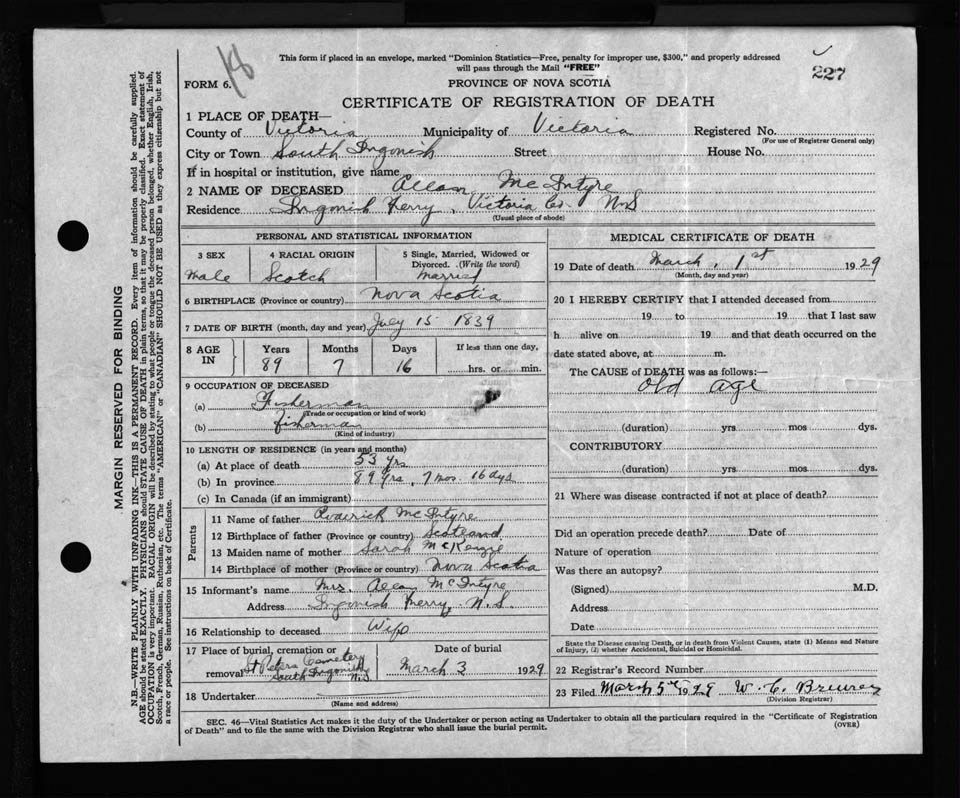 18
This form if placed in an envelope, marked "Dominion Statistics—Free, penalty for improper use, $300," and properly addressed
will pass through the Mail "FREE"
227
FORM 6.
PROVINCE OF NOVA SCOTIA
CERTIFICATE OF REGISTRATION OF DEATH
1 PLACE OF DEATH—
County of Victoria Municipality of Victoria Registered No.
(For use of Registrar General only)
City or Town South Ingonish Street House No.
If in hospital or institution, give name
2 NAME OF DECEASED Allan McIntyre
Residence Ingonish Ferry, Victoria Co. N.S
(Usual place of abode)
PERSONAL AND STATISTICAL INFORMATION
3 SEX 4 RACIAL ORIGIN 5 Single, Married, Widowed or
Divorced. (Write the word)
Male Scotch Married
6 BIRTHPLACE (Province or country) Nova Scotia
7 DATE OF BIRTH (month, day and year) July 15 1839
8 AGE IN Years Months Days If less than one day,
89 7 16 hrs. or min.
9 OCCUPATION OF DECEASED
(a) Fisherman
(Trade or occupation or kind of work)
(b) fisherman
(Kind of industry)
10 LENGTH OF RESIDENCE (in years and months)
(a) At place of death 53 yrs
(b) In province 89 yrs, 7 mos. 16 dys
(c) In Canada (if an immigrant)
Parents
11 Name of father McIntyre
12 Birthplace of father (Province or country) Scotland
13 Maiden name of mother Sarah McKenzie
14 Birthplace of mother (Province or country) Nova Scotia
15 Informant's name Mrs. Allan McIntyre
Address Ingonish Ferry, N.S.
16 Relationship to deceased Wife
17 Place of burial, cremation or Date of burial
removal St Peters Cemetery South Ingonish N.S. March 3 1929
18 Undertaker
(Name and address)
MEDICAL CERTIFICATE OF DEATH
19 Date of death March, 1st 1929
(Month, day and year)
20 I HEREBY CERTIFY that I attended deceased from
19 to 19 that I last saw
h alive on 19 and that death occurred on the
date stated above, at m.
The CAUSE of DEATH was as follows:—
old age
(duration) yrs mos dys.
CONTRIBUTORY
(duration) yrs. mos. dys.
21 Where was disease contracted if not at place of death?
Did an operation precede death? Date of
Nature of operation
Was there an autopsy?
(Signed) M.D.
Address
Date
State the Disease causing Death, or in death from Violent Causes, state (1) Means and Nature
of Injury, (2) whether Accidental, Suicidal or Homicidal.
22 Registrar's Record Number
23 Filed March 5th 1929 W. C.
(Division Registrar)
SEC. 46—Vital Statistics Act makes it the duty of the Undertaker or person acting as Undertaker to obtain all the particulars required in the "Certificate of Registration
of Death" and to file the same with the Division Registrar who shall issue the burial permit.
(OVER)
MARGIN RESERVED FOR BINDING
N.B.—WRITE PLAINLY WITH UNFADING INK—THIS IS A PERMANENT RECORD. Every item of information should be carefully supplied.
AGE should be stated EXACTLY. PHYSICIANS should STATE CAUSE OF DEATH in plain terms, so that it may be properly classified. Exact statement of
OCCUPATION is very important. RACIAL ORIGIN will be described by stating to what people or tongue the deceased person belonged, whether English, Irish,
Scotch, French, German, Russian, Ruthenian, etc. The terms "AMERICAN" or "CANADIAN" SHOULD NOT BE USED as they express citizenship but not
a race or people. See instructions on back of Certificate.